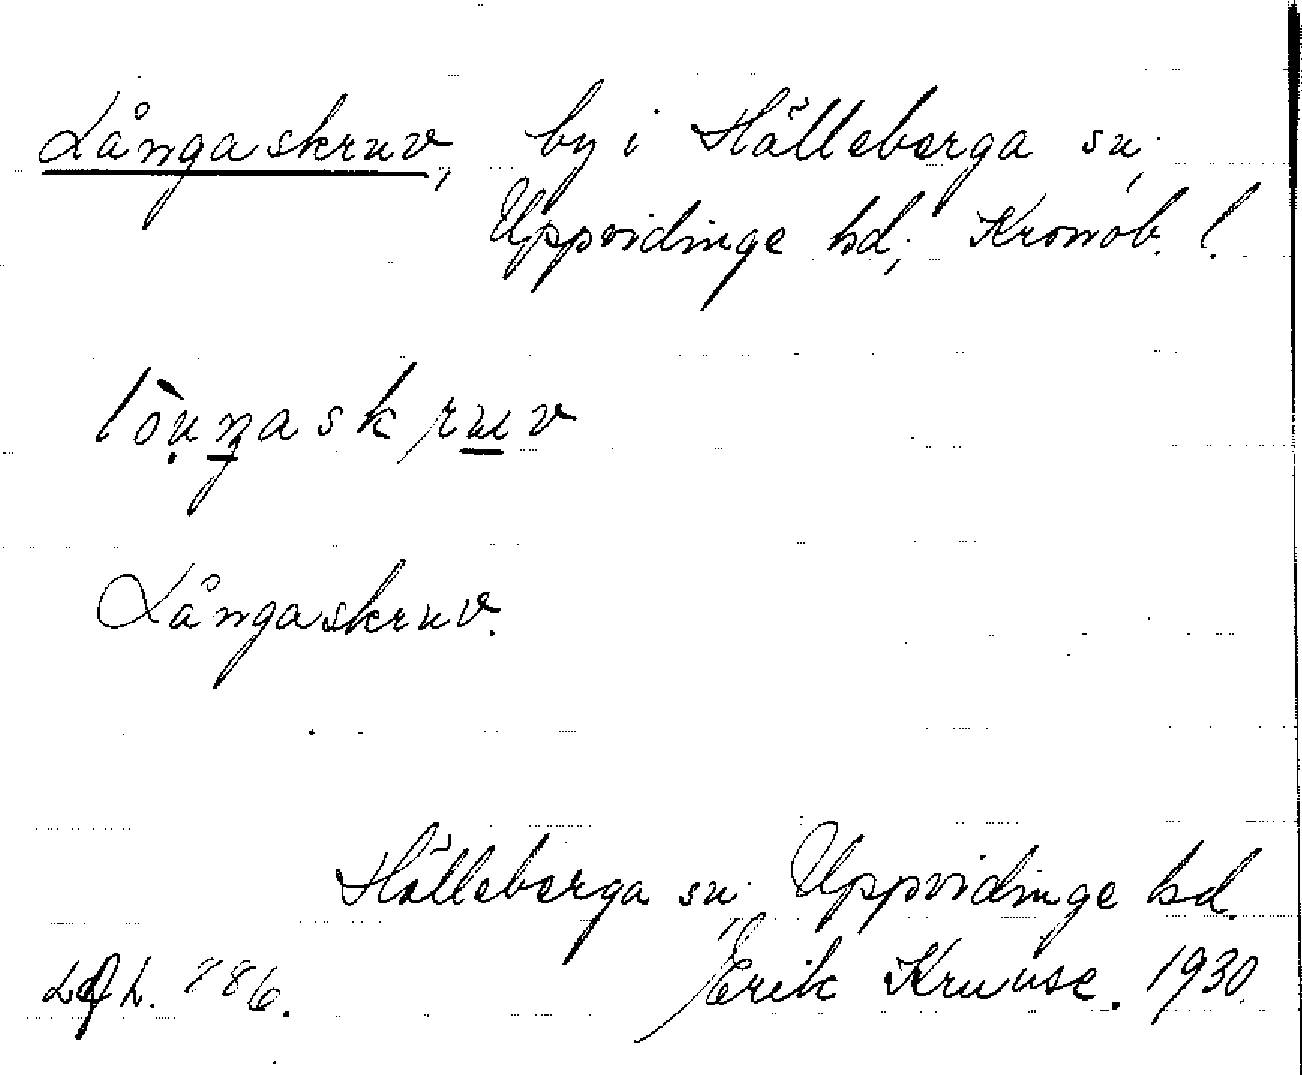 Långaskruv, by i Hälleberga sn,
Uppvidinge hd, Kronob. l.
Långaskruv.
Hälleberga sn, Uppvidinge hd.
Erik Kruuse. 1930.